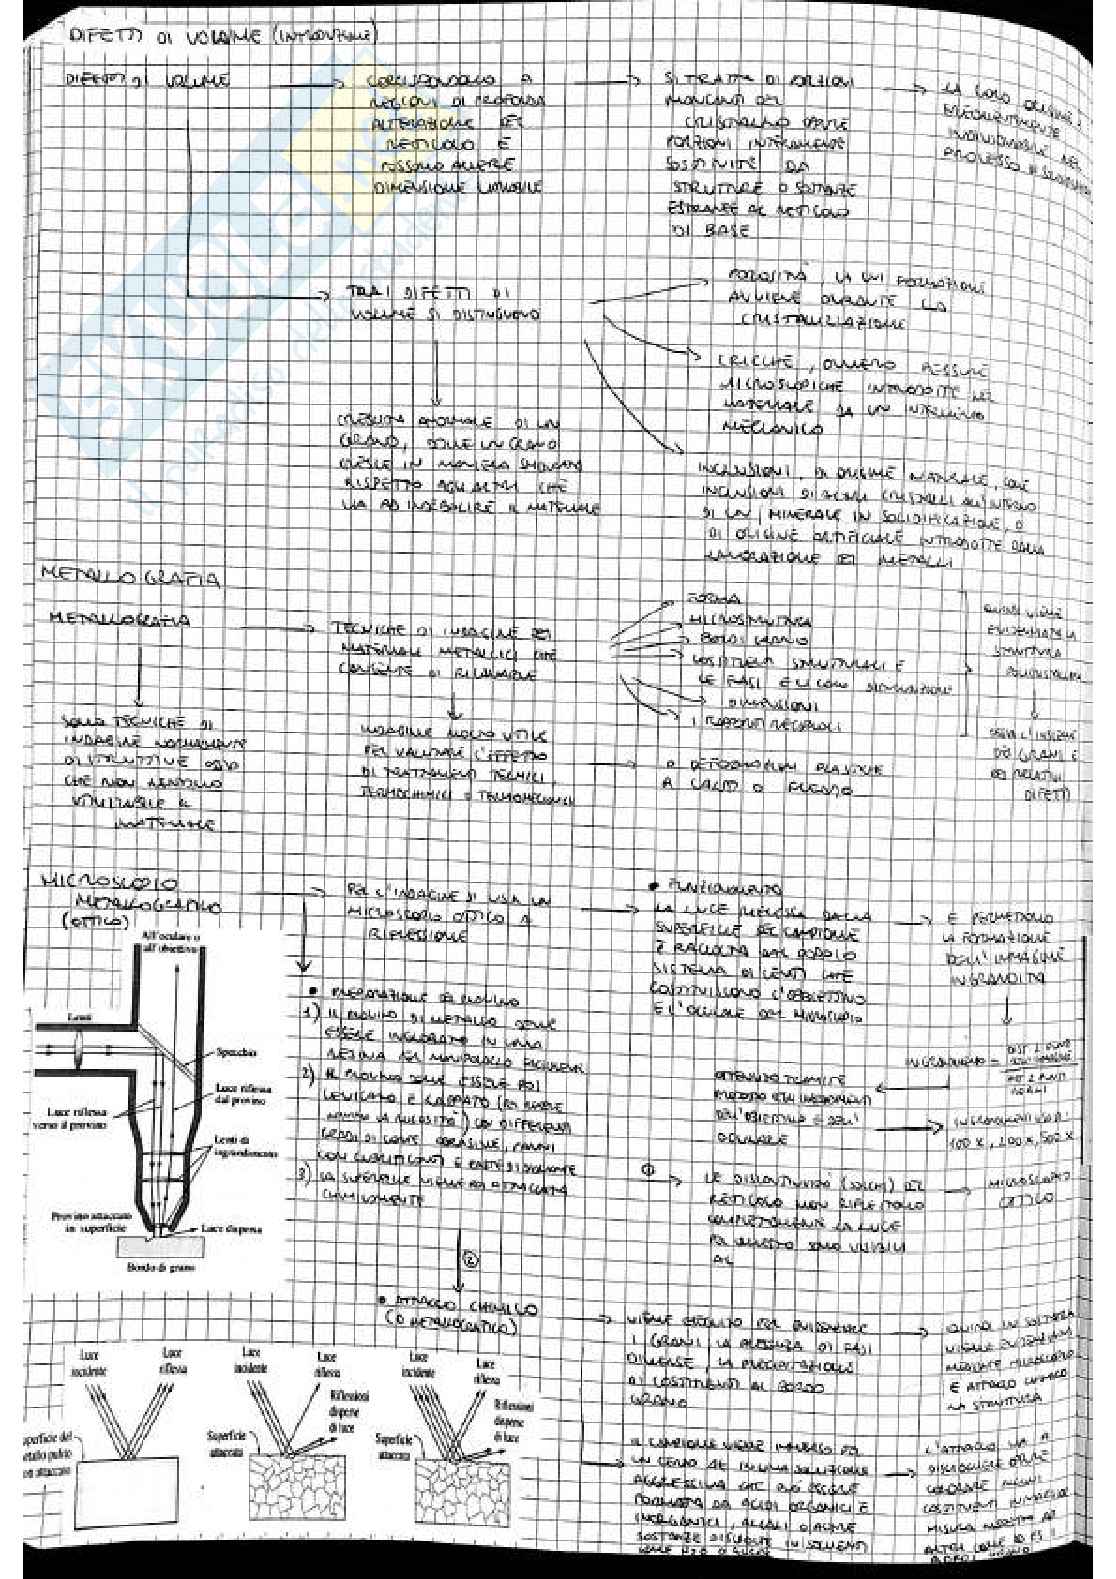 DIFETTI DI VOLUME (INTRODUZIONE)
DIFETTI DI VOLUME
CORRISPONDONO A
REGIONI DI PROFONDA
ALTERAZIONE DEL
RETICOLO E
POSSONO AVERE
DIMENSIONE VARIABILE
SI TRATTA DI PORZIONI
MANCANTI DEL
CRISTALLINO OPPURE
PORZIONI INTERAMENTE
SOSTITUITE DA
STRUTTURE O SOSTANZE
ESTRANEE AL RETICOLO
DI BASE
LA LORO ORIGINE È
INDIVIDUABILE NEL
PROCESSO DI
TRA I DIFETTI DI
VOLUME SI DISTINGUONO
POROSITÀ, LA CUI FORMAZIONE
AVVIENE DURANTE LA
CRISTALLIZZAZIONE
CRICCHE, OVVERO FESSURE
MICROSCOPICHE INTRODOTTE NEL
MATERIALE DA UN INTERVENTO
MECCANICO
INCLUSIONI, DI ORIGINE NATURALE, COME
INCLUSIONI DI ALTRI CRISTALLI ALL'INTERNO
DI UN MINERALE IN SOLIDIFICAZIONE, O
DI ORIGINE ARTIFICIALE INTRODOTTE DALLA
LAVORAZIONE DEI METALLI
CRESCITA ANOMALE DI UN
GRANO, DOVE UN GRANO
CRESCE IN MANIERA
RISPETTO AGLI ALTRI CHE
VA AD INDEBOLIRE IL MATERIALE
METALLOGRAFIA
METALLOGRAFIA
TECNICHE DI INDAGINE DEI
MATERIALI METALLICI CHE
CONSENTE DI RILEVARE
FORMA
MICROSTRUTTURA
BORDI GRANO
COSTITUENTI STRUTTURALI E
LE FASI E LA LORO DISTRIBUZIONE
DIMENSIONI
I RAPPORTI RECIPROCI
QUINDI VIENE
EVIDENZIATA LA
STRUTTURA
POLICRISTALLINA
OSSIA L'INSIEME
DEI GRANI E
DEI RELATIVI
DIFETTI
SONO TECNICHE DI
INDAGINE NORMALMENTE
DISTRUTTIVE OSSIA
CHE NON RENDONO
UTILIZZABILE IL
MATERIALE
INDAGINE MOLTO UTILE
PER VALUTARE L'EFFETTO
DI TRATTAMENTI TERMICI,
TERMOCHIMICI O TERMOMECCANICI
O DEFORMAZIONI PLASTICHE
A CALDO O FREDDO
MICROSCOPIO
METALLOGRAFICO
(OTTICO)
PER L'INDAGINE SI USA UN
MICROSCOPIO OTTICO A
RIFLESSIONE
• FUNZIONAMENTO
LA LUCE RIFLESSA DALLA
SUPERFICIE DEL CAMPIONE
È RACCOLTA DAL DOPPIO
SISTEMA DI LENTI CHE
COSTITUISCONO L'OBBIETTIVO
E L'OCULARE DEL MICROSCOPIO
E PERMETTONO
LA FORMAZIONE
DELL'IMMAGINE
INGRANDITA
INGRANDIMENTO =
DIST 2 PUNTI
SULL'IMMAGINE
DIST 2 PUNTI
REALI
OTTENUTO TRAMITE
DELL'OBIETTIVO E DELL'
OCULARE
INGRANDIMENTI USUALI
100 X, 200 X, 500 X
• PREPARAZIONE DEL PROVINO
1) IL PROVINO DI METALLO DEVE
ESSERE INGLOBATO IN UNA
RESINA PER MANIPOLARLO FACILMENTE
2) IL PROVINO DEVE ESSERE POI
LEVIGATO E LAPPATO (PER
LA RUGOSITÀ) CON DIFFERENTI
GRADI DI CARTE ABRASIVE, PANNI
CON LUBRIFICANTI E PASTE DIAMANTATE
3) LA SUPERFICIE VIENE POI ATTACCATA
CHIMICAMENTE
LE DISCONTINUITÀ (SOLCHI) DEL
RETICOLO NON RIFLETTONO
COMPLETAMENTE LA LUCE
PER QUESTO SONO VISIBILI
AL
MICROSCOPIO
OTTICO
All'oculare o
all'obiettivo
Lenti
Specchio
Luce riflessa
dal provino
Luce riflessa
verso il provino
Lenti di
ingrandimento
Provino attaccato
in superficie
Luce dispersa
Bordo di grano
②
• ATTACCO CHIMICO
(O METALLOGRAFICO)
VIENE ESEGUITO PER EVIDENZIARE
I GRANI, LA PRESENZA DI FASI
DIVERSE, LA PRECIPITAZIONE
DI COSTITUENTI AL BORDO
GRANO
QUINDI IN SOSTANZA
VIENE EVIDENZIATA
MEDIANTE MICROSCOPIO
E ATTACCO CHIMICO
LA STRUTTURA
Luce incidente
Luce riflessa
Superficie del
metallo pulito
non attaccato
Luce incidente
Luce riflessa
Riflessioni
disperse
di luce
Superficie
attaccata
Luce incidente
Luce riflessa
Riflessioni
disperse
di luce
Superficie
attaccata
IL CAMPIONE VIENE IMMERSO PER
UN CERTO IN UNA SOLUZIONE
AGGRESSIVA CHE PUÒ ESSERE
FORMATA DA ACIDI ORGANICI E
INORGANICI, ALCALI O ALTRE
SOSTANZE DISCIOLTE IN SOLVENTI
COME H2O O
L'ATTACCO VA A
DISCIOGLIERE OPPURE
COLORARE ALCUNI
COSTITUENTI IN MAGGIOR
MISURA RISPETTO AD
ALTRI COME AD ES I
BORDI GRANO
SKUOLA.NET